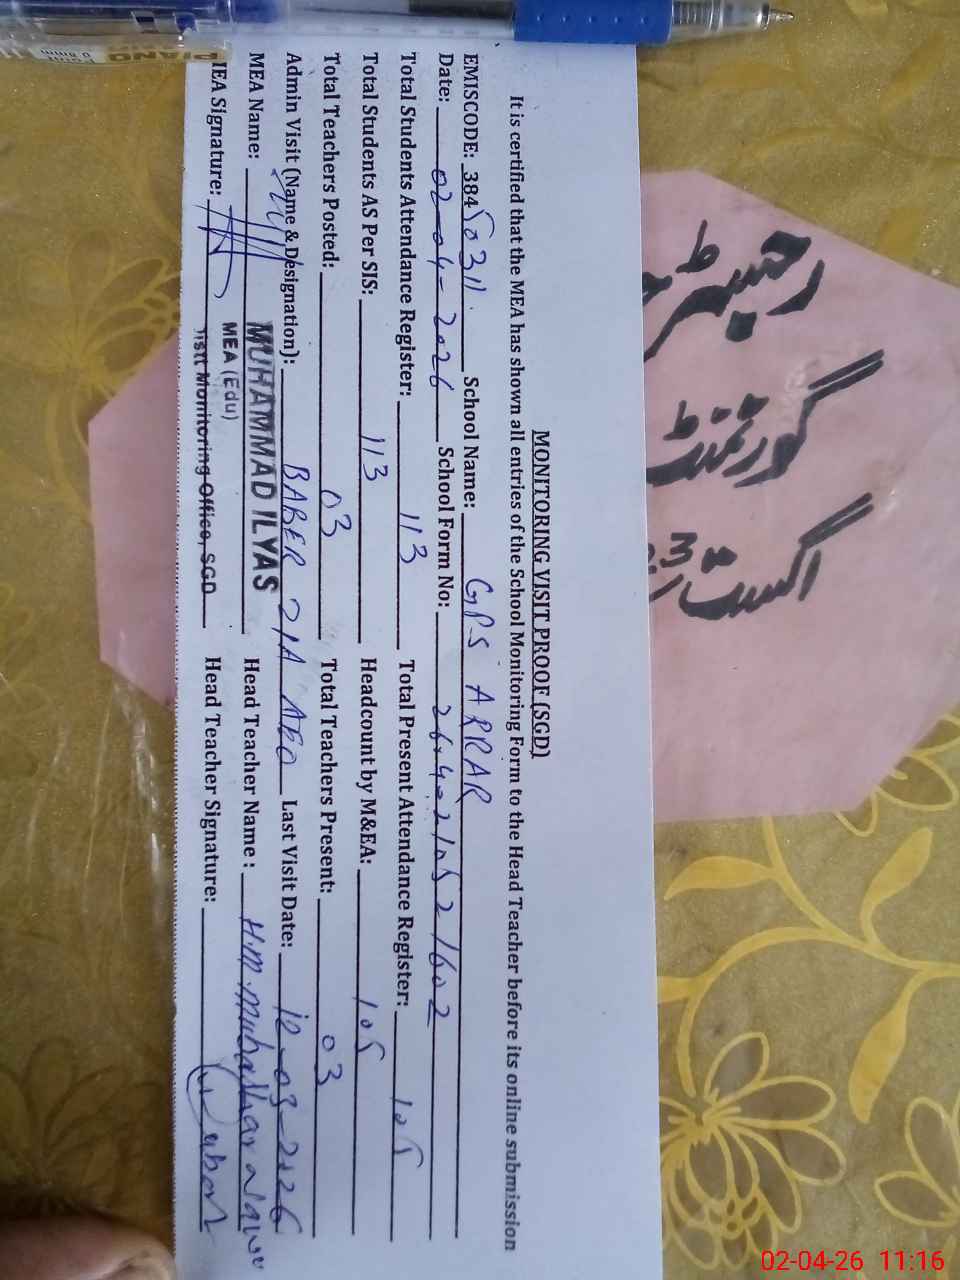 MONITORING VISIT PROOF (SGD)
It is certified that the MEA has shown all entries of the School Monitoring Form to the Head Teacher before its online submission
EMISCODE: 38450311 School Name: GPS ARRAR
Date: 02-04-2026 School Form No:
Total Students Attendance Register: 113 Total Present Attendance Register: 105
Total Students AS Per SIS: 113 Headcount by M&EA: 105
Total Teachers Posted: 03 Total Teachers Present: 03
Admin Visit (Name & Designation): BABER ZIA AEO Last Visit Date: -03-2026
MEA Name: MUHAMMAD ILYAS Head Teacher Name :
MEA (Edu)
Signature: Head Teacher Signature:
Distt Monitoring Office, SGD
رجسٹر
گورنمنٹ
اگست
PIANO
02-04-26 11:16